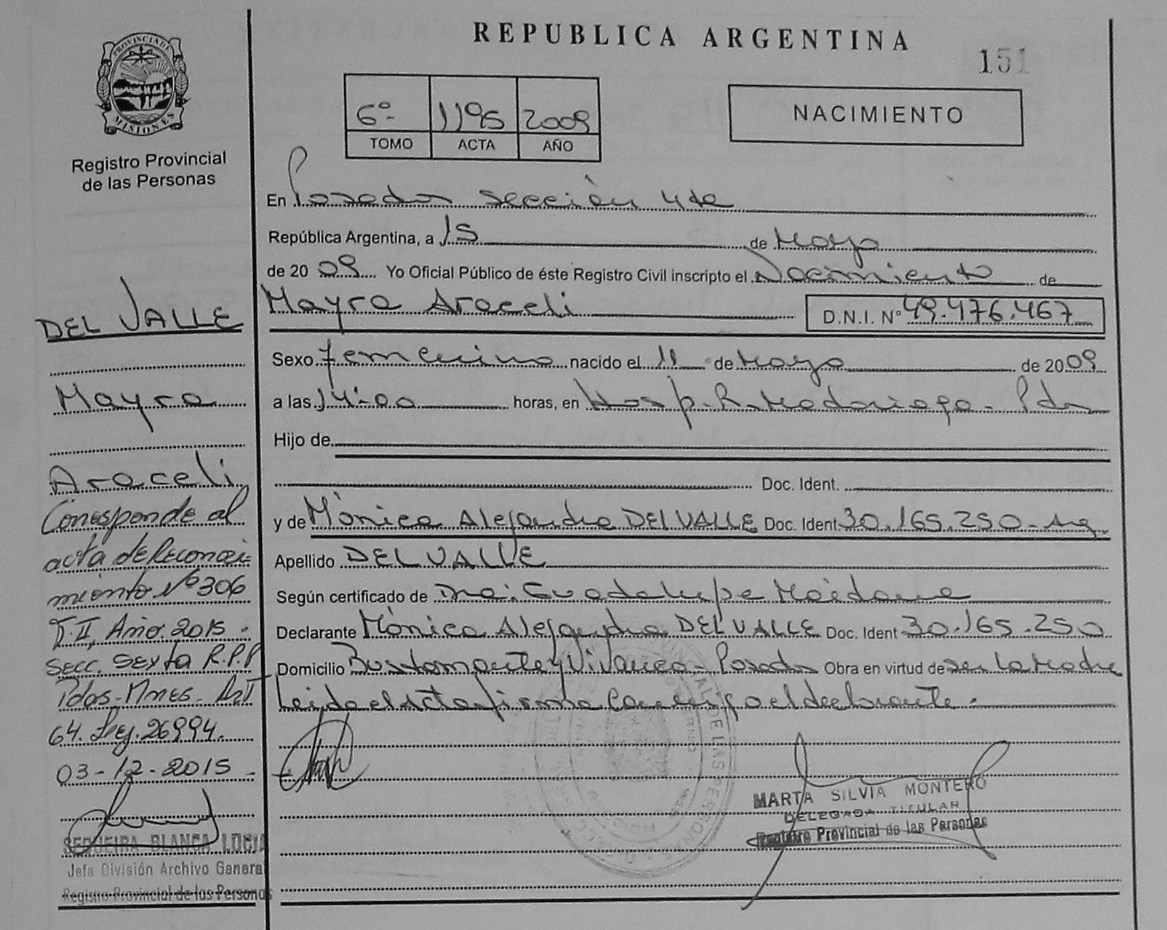 REPUBLICA ARGENTINA
151
PROVINCIA DE
MISIONES
Registro Provincial
de las Personas
6º 1195 2009
TOMO ACTA AÑO
NACIMIENTO
En Posadas Sección 4ta
República Argentina, a 15 de Mayo
de 2009 Yo Oficial Público de éste Registro Civil inscripto el Nacimiento de
Mayra Araceli D.N.I. Nº 49.476.467
Sexo femenino nacido el 11 de Mayo de 2009
a las 14:00 horas, en Hosp. R. Madariaga - Pdas
Hijo de
Doc. Ident.
y de Mònica Alejandra DEL VALLE Doc. Ident 30.165.250- Arg.
Apellido DEL VALLE
Según certificado de Dra: Guadalupe Maidana
Declarante Mònica Alejandra DEL VALLE Doc. Ident 30.165.250
Domicilio Bustamante y Vivanco - Posadas Obra en virtud de ser la Madre
Leida el Acta firma conmigo el declarante.
MARTA SILVIA MONTERO
DELEGADA TITULAR
Registro Provincial de las Personas
DEL VALLE
Mayra
Araceli
Corresponde al
acta de Reconoci
miento Nº 306
T. II, Año 2015.
Secc. Sexta R.P.P
Pdas-Mnes. Art
64. Ley. 26994.
03-12-2015-
SEQUEIRA BLANCA LUCIA
Jefa División Archivo General
Registro Provincial de las Personas